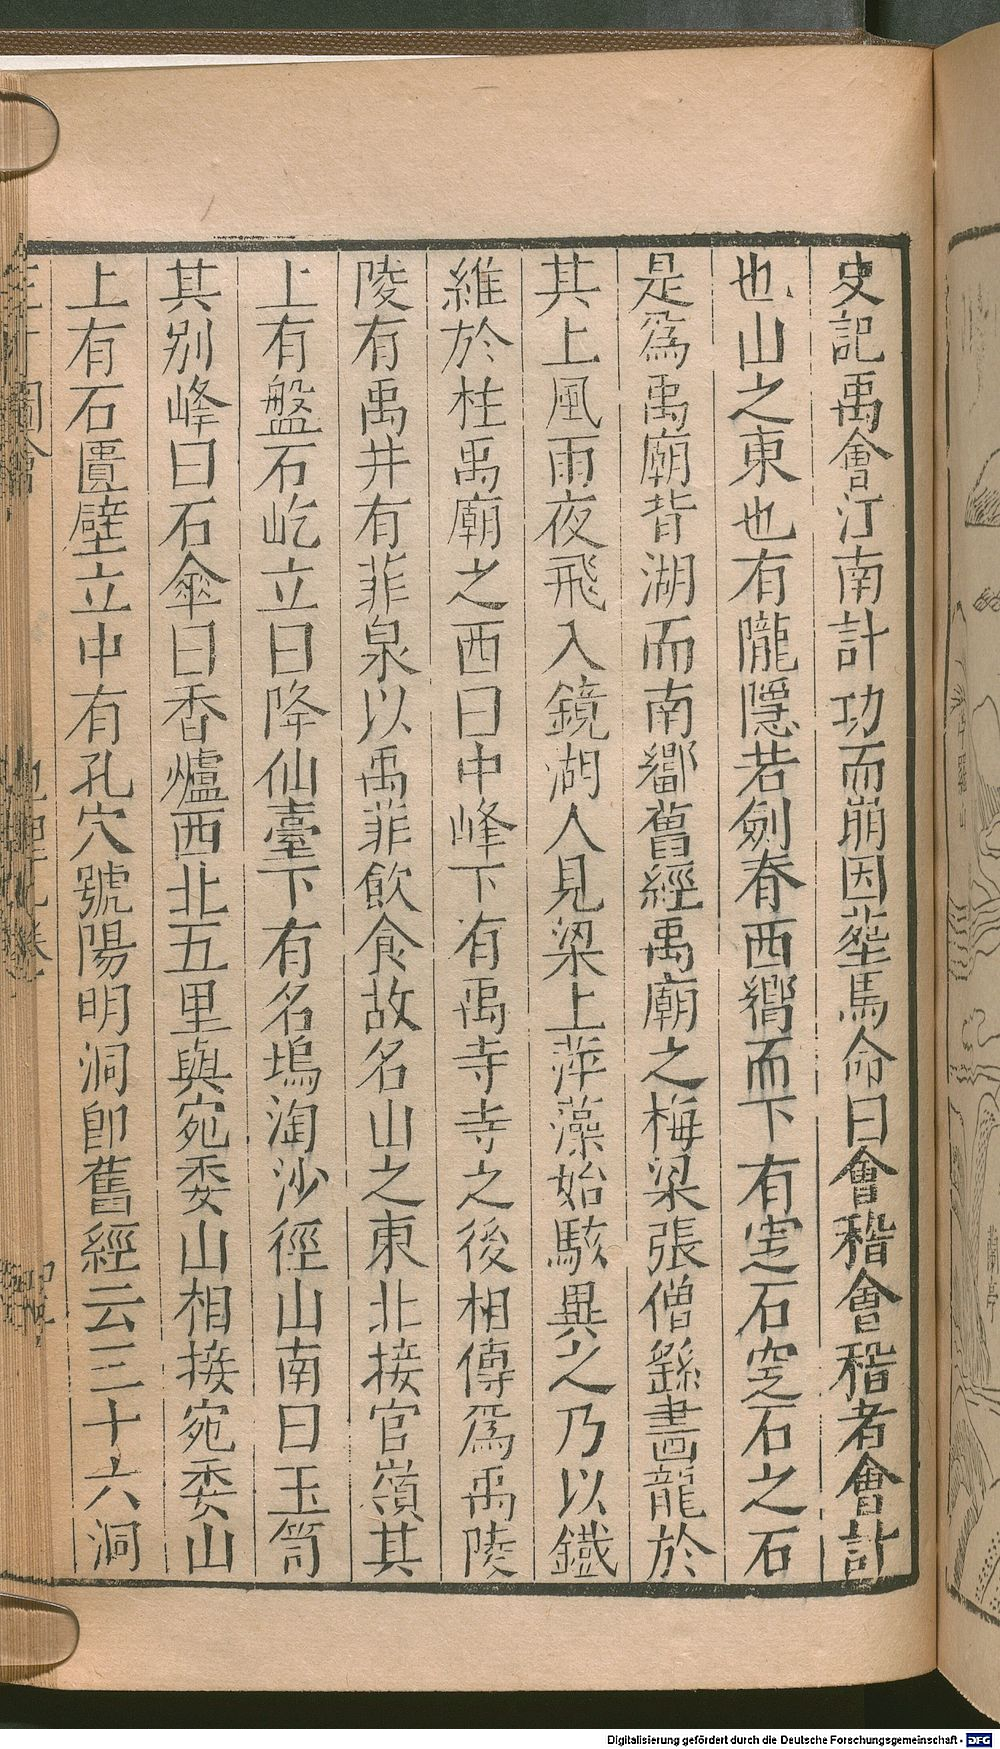 史記禹會江南計功而崩因塟焉命曰會稽會稽者會計
也山之東也有隴隱若劍脊西嚮而下有窆石窆石之石
是爲禹廟背湖而南鄉舊經禹廟之梅梁張僧繇畫龍於
其上風雨夜飛入鏡湖人見梁上萍藻始駭異之乃以鐵
維於柱禹廟之西曰中峰下有禹寺寺之後相傳爲禹陵
陵有禹井有菲泉以禹菲飲食故名山之東北接官嶺其
上有盤石屹立曰降仙臺下有名塢淘沙徑山南曰玉笥
其别峰曰石傘曰香爐西北五里與宛委山相接宛委山
上有石匱壁立中有孔穴號陽明洞卽舊經云三十六洞
Digitalisierung gefördert durch die Deutsche Forschungsgemeinschaft - DFG